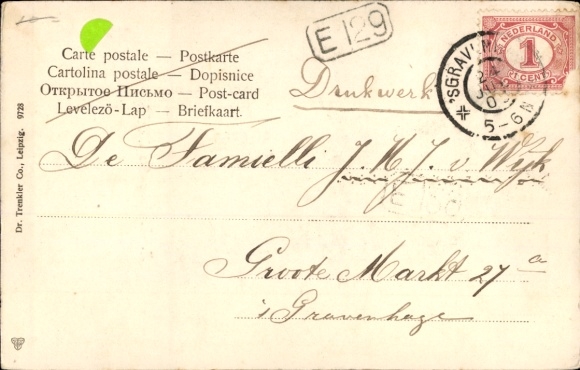 E 129
Carte postale — Postkarte
Cartolina postale — Dopisnice
Открытое Письмо — Post-card
Levelezö-Lap — Briefkaart.
Drukwerk
NEDERLAND
1
CENT
'SGRAV
5-6 N
De Familli J. M. J. v Wijk
Groote Markt 27 a
's Gravenhage
Dr. Trenkler Co., Leipzig. 9728